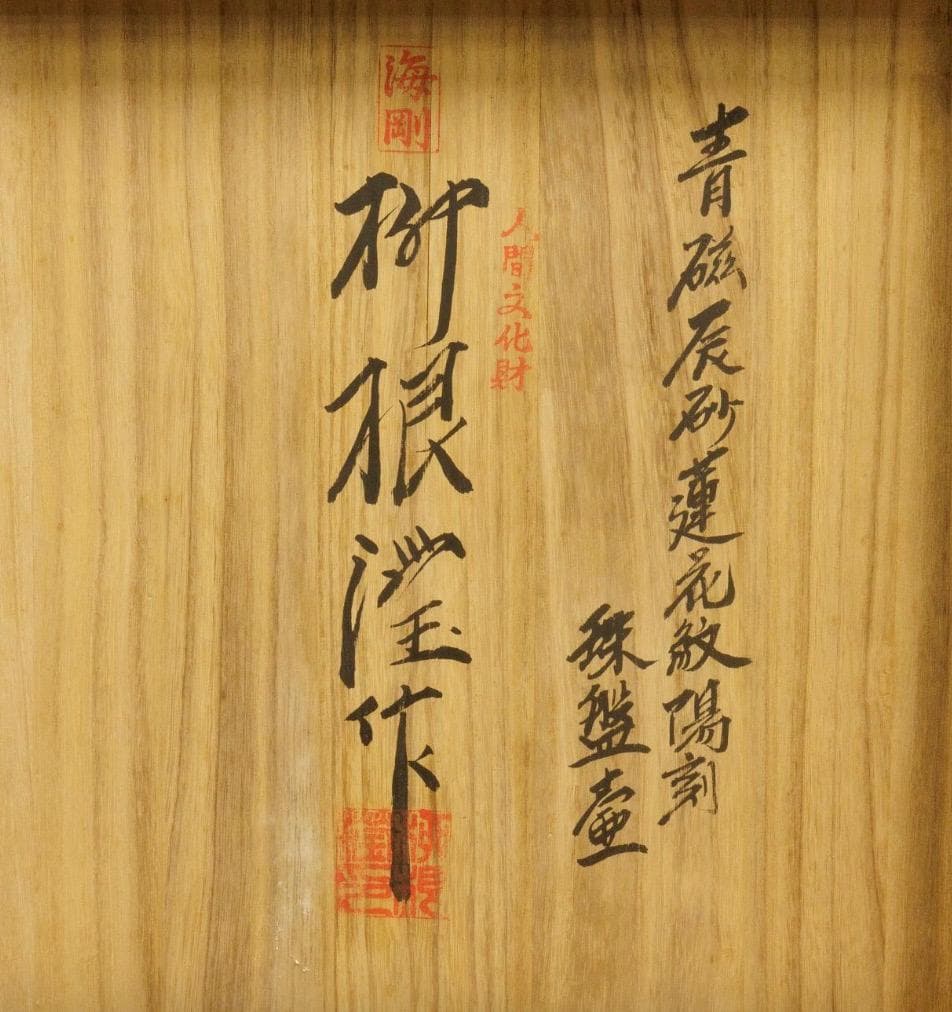 青磁辰砂蓮花紋陽刻
盤壷
人間文化財
海剛
柳根瀅作